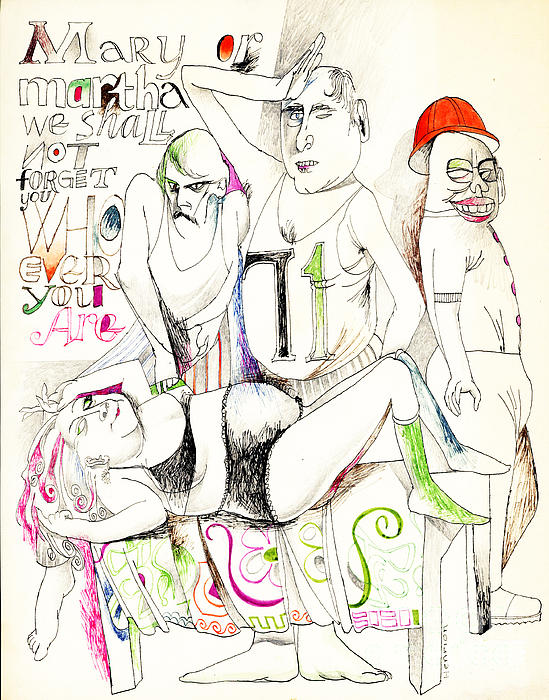 Mary or
martha
we shall
NOT
forget
you
WHO
ever
you
Are
11
Henrion